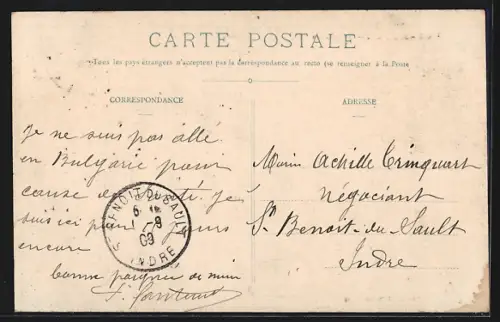 CARTE POSTALE
Tous les pays étrangers n'acceptent pas la correspondance au recto (se renseigner à la Poste
CORRESPONDANCE
ADRESSE
Je ne suis pas allé
en Bulgarie pour
cause de Je
suis ici pour jours
encore
bonne poignée de main
Achille Trinquart
Négociant
St Benoit-du-Sault
Indre
ST BENOIT-DU-SAULT
09
INDRE